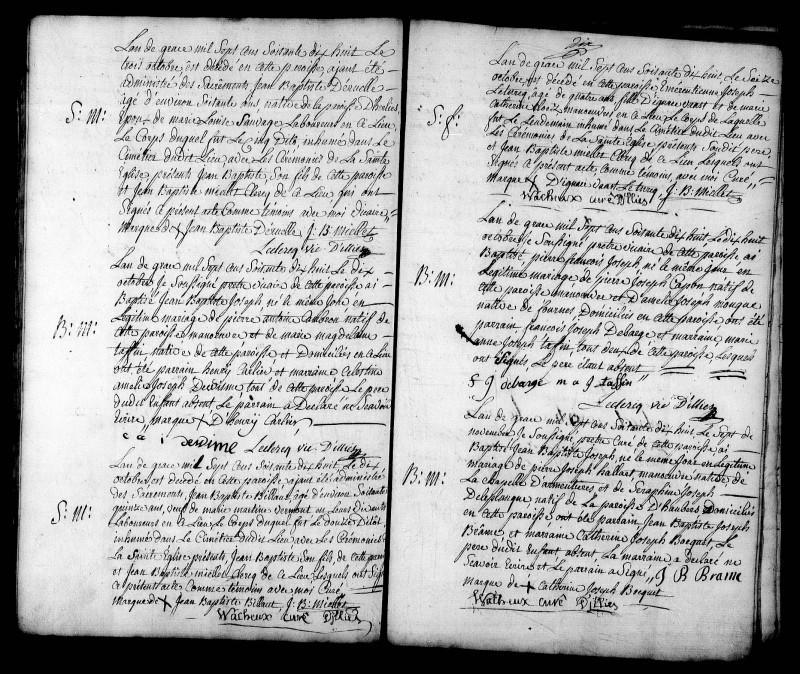 Lan de grace mil Sept cens Soixante dix huit Le
trois octobre est décédé en cette paroisse ajant été
administré des Sacréments Jean Baptiste Déruelle
âgé d'environ Soixante ans native de la paroisse
S: M: Epoux de marie Louise Sauvage Laboureur en ce Lieu,
Le Corps duquel fut Le cinq Dito, inhumé dans Le
Cimetière dudit Lieu avec Les Cérémonies de La Sainte
Eglise présents Jean Baptiste Son fils de cette paroisse
et Jean Baptiste miellet Clercq de ce Lieu qui ont
Signés ce présent acte Comme témoins avec moi vicaire,
Marque de X Jean Baptiste Déruelle J: B: Miellet
Leclercq vic D'illies
Lan de grace mil Sept cens Soixante dix huit Le dix
octobre je Soussigné pretre vicaire de cette paroisse ai
Baptisé Jean Baptiste Joseph né le même Jour en
Légitime mariage de pierre antoine natif de
B: M: cette paroisse manouvre et de marie magdelaine
taffin native de cette paroisse et Domiciliés en ce Lieu
ont été parrain henry Carlier et marraine Celestine
amelie Joseph tous de cette paroisse Le pere
dudit Enfant absent Le parrain a Declaré ne Scavoir
Ecrire marque X D'henry Carlier
Leclercq vic D'illies
Lan de grace mil Sept cens Soixante dix huit, Le dix
octobre est décédé en cette paroisse ajant été administré
des Sacrements Jean Baptiste Billaut, âgé d'environ Soixante
quinze ans, veuf de marie martine vermont
S: M: Laboureur en ce Lieu Le Corps duquel fut Le douze Dito
inhumé dans Le Cimetière dudit Lieu avec Les Cérémonies de
La Sainte Eglise présents Jean Baptiste Son fils, de cette paroisse
et Jean Baptiste miellet Clercq de ce Lieu Lesquels ont Signé
ce présent acte Comme témoins avec moi Curé
Marque de X Jean Baptiste Billaut, J: B: Miellet
Wacheux curé D'illies
dix
Lan de grace mil Sept cens Soixante dix huit, Le Seize
octobre est décédée en cette paroisse Emérentienne Joseph
Leturcq, âgée de quatre ans fille D'ignace vaast et de marie
S: f: Catherine manouvriers en ce Lieu Le Corps de Laquelle
fut Le Lendemain inhumé dans Le Cimetière dudit Lieu avec
Les Cérémonies de La Sainte Eglise présents Sondit pere,
et Jean Baptiste miellet Clercq de ce Lieu Lesquels ont
Signés ce présent acte, comme témoins, avec moi Curé
Marque X D'ignace vaast Leturcq J: B: Miellet
Wacheux curé D'illies
Lan de grace mil Sept cens Soixante dix huit Le dix huit
octobre je Soussigné pretre vicaire de cette paroisse ai
Baptisé pierre francois Joseph né le même Jour en
B: M: Legitime mariage de pierre Joseph natif de
cette paroisse manouvre et D'amélie Joseph
native de fournes Domiciliés en cette paroisse ont été
parrain francois Joseph Debarge et marraine marie
anne Joseph taffin, tous deux de cette paroisse Lesquels
ont Signés, Le pere étant absent
f J debarge m a J taffin
Leclercq vic D'illies
Lan de grace mil Sept cens Soixante dix huit, Le Sept de
novembre je Soussigné pretre Curé de cette paroisse ai
Baptisé Jean Baptiste Joseph, né le même Jour en Legitime
mariage de pierre Joseph hallart manouvre natif de
B: M: La Chapelle D'armentieres et de Seraphine Joseph
Deleplanque natif de La paroisse D'haubers Domiciliés
en cette paroisse ont été parrain Jean Baptiste Joseph
Bráme et marraine Catherine Joseph Bocquet, Le
pere dudit Enfant absent La marraine a declaré ne
Scavoir Ecrire et Le parrain a Signé, J B Brame
marque de X Catherine Joseph Bocquet
Wacheux curé D'illies